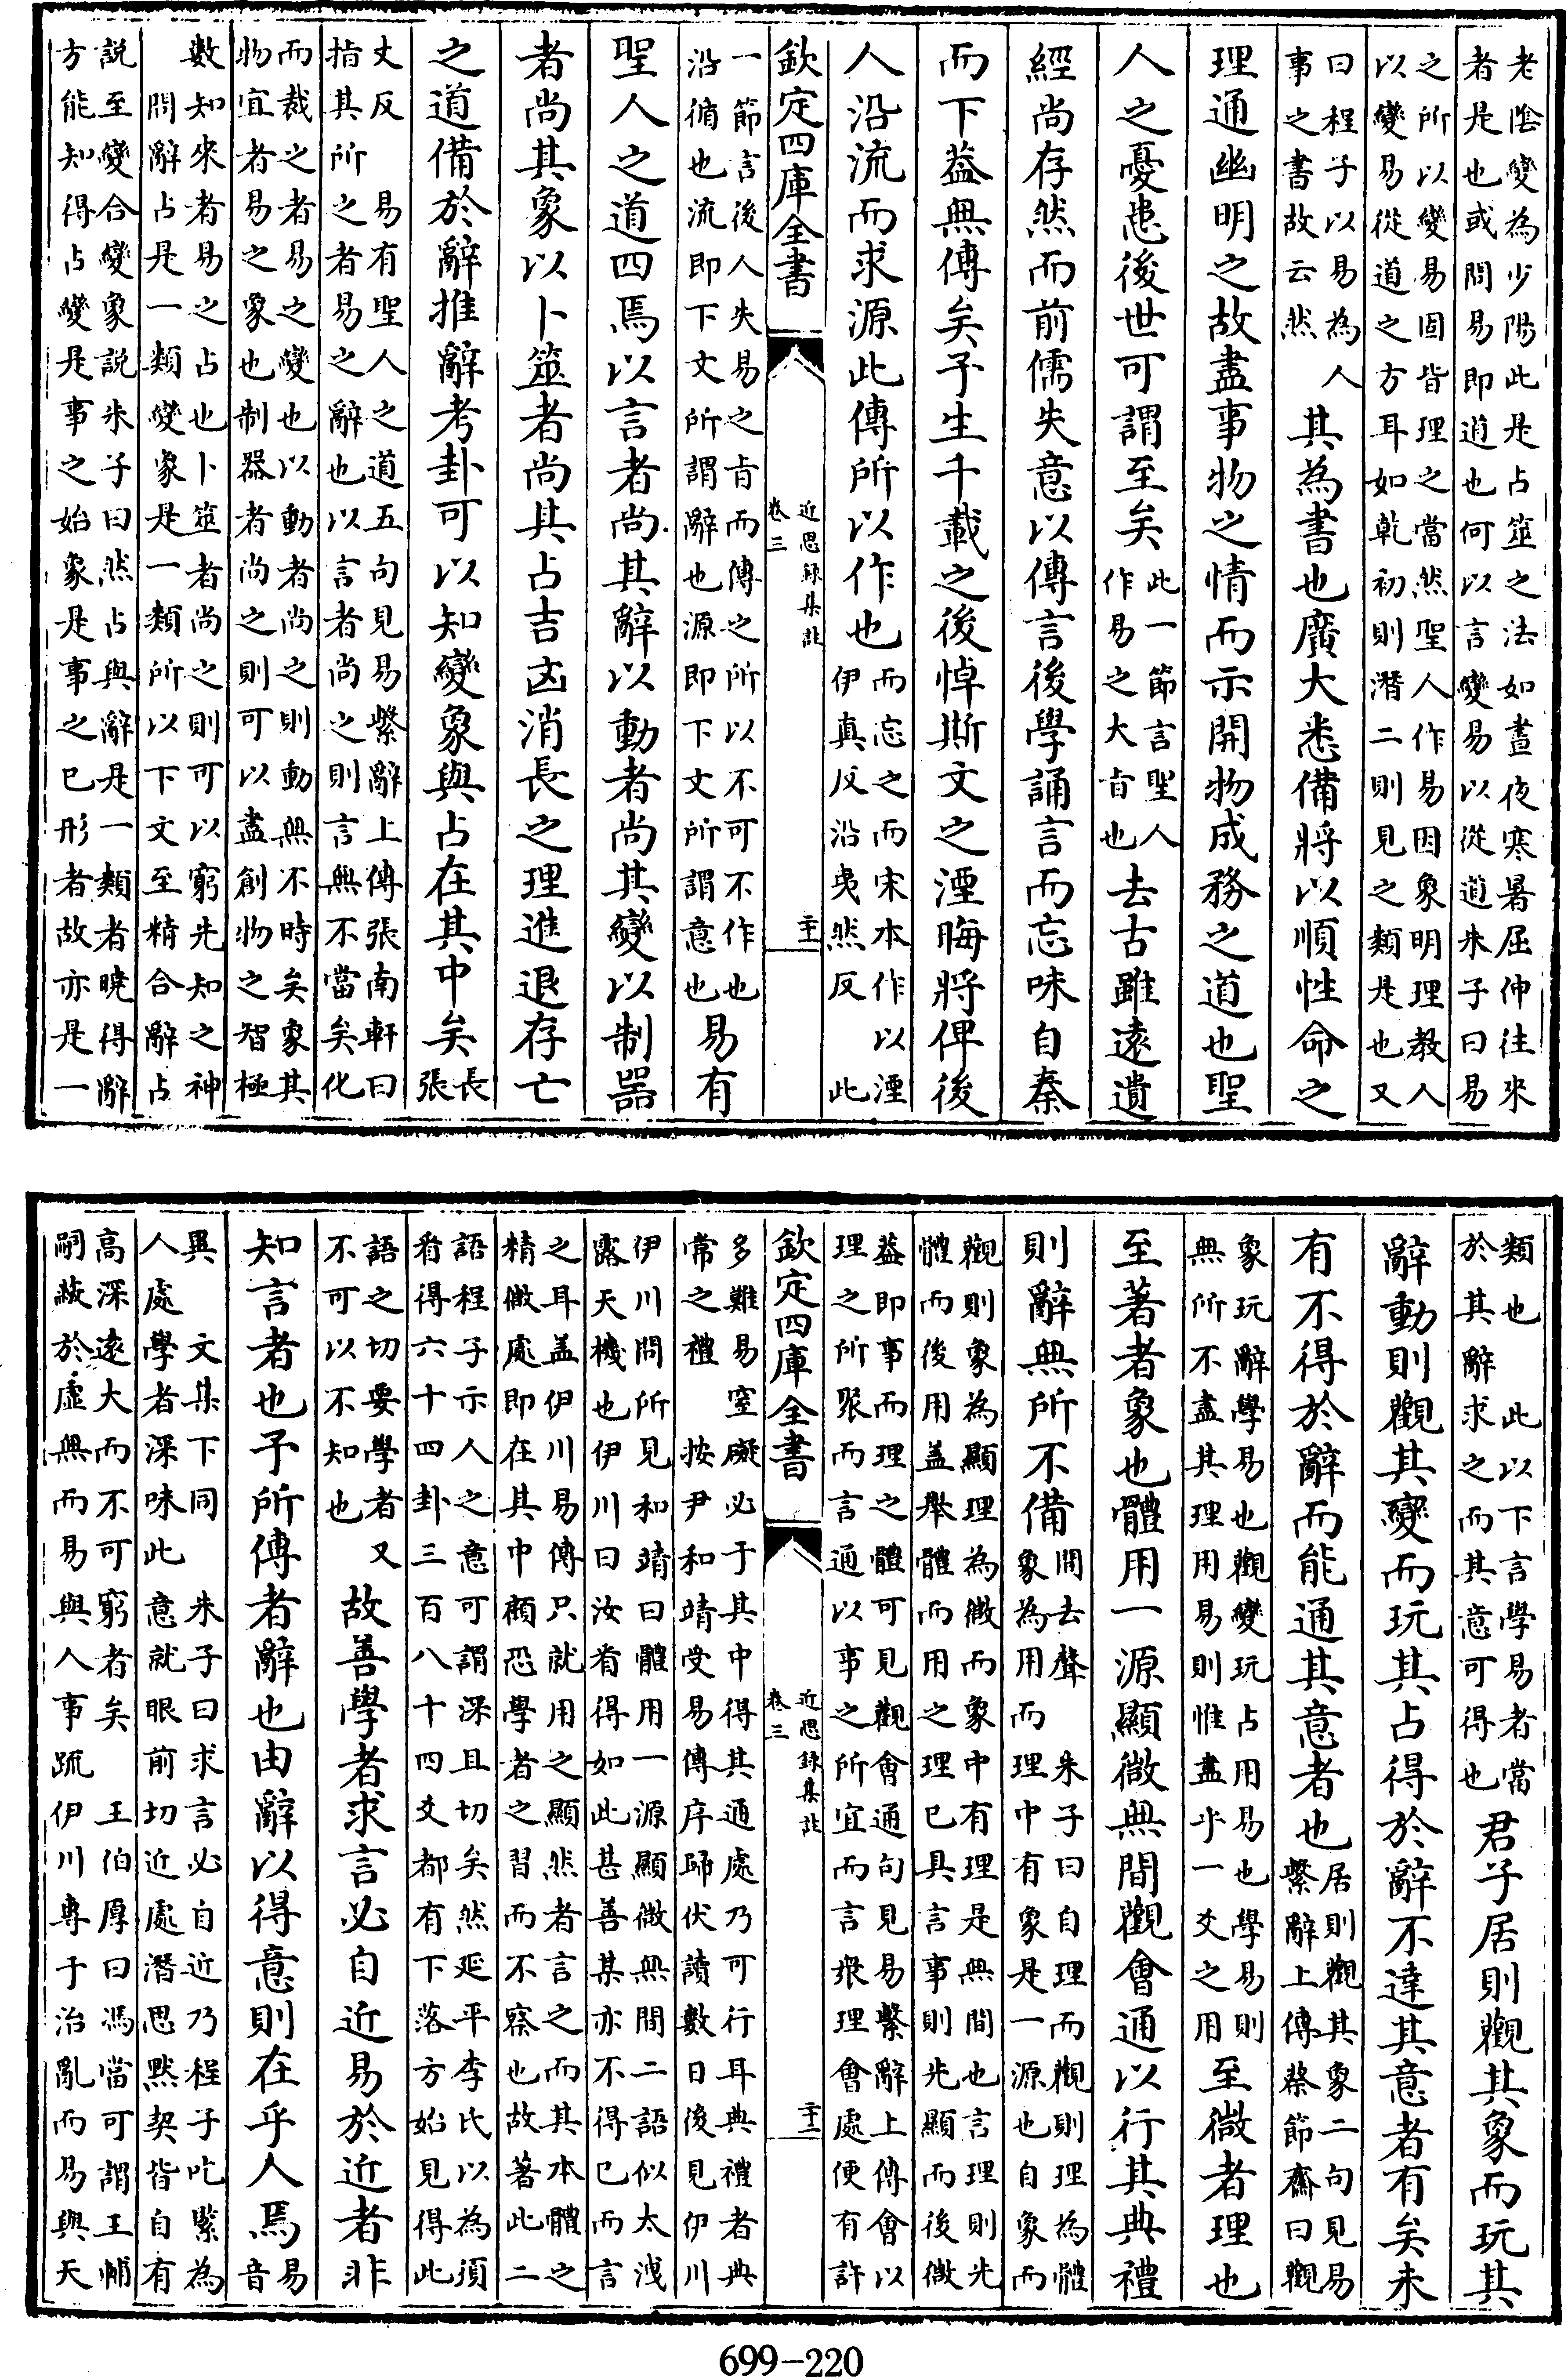 老隂變為少陽此是占筮之法如晝夜寒暑屈伸往來
者是也或問易即道也何以言變易以從道朱子曰易
之所以變易固皆理之當然聖人作易因象明理教人
以變易從道之方耳如乾初則潛二則見之類是也又
曰程子以易為人
事之書故云然
其為書也廣大悉備將以順性命之
理通幽明之故盡事物之情而示開物成務之道也聖
人之憂患後世可謂至矣
此一節言聖人
作易之大旨也
去古雖遠遺
經尚存然而前儒失意以傳言後學誦言而忘味自秦
而下葢無傳矣予生千載之後悼斯文之湮晦將俾後
人沿流而求源此傳所以作也
而忘之而宋本作以湮
伊真反沿夷然反 此
欽定四庫全書
近思録集註
卷三
二十一
一節言後人失易之旨而傳之所以不可不作也
沿循也流即下文所謂辭也源即下文所謂意也
易有
聖人之道四焉以言者尚其辭以動者尚其變以制器
者尚其象以卜筮者尚其占吉凶消長之理進退存亡
之道備於辭推辭考卦可以知變象與占在其中矣
長張
丈反 易有聖人之道五句見易繫辭上傳張南軒曰
指其所之者易之辭也以言者尚之則言無不當矣化
而裁之者易之變也以動者尚之則動無不時矣象其
物宜者易之象也制器者尚之則可以盡創物之智極
數知來者易之占也卜筮者尚之則可以窮先知之神
問辭占是一類變象是一類所以下文至精合辭占
説至變合變象説朱子曰然占與辭是一類者曉得辭
方能知得占變是事之始象是事之已形者故亦是一
類也 此以下言學易者當
於其辭求之而其意可得也
君子居則觀其象而玩其
辭動則觀其變而玩其占得於辭不達其意者有矣未
有不得於辭而能通其意者也
居則觀其象二句見易
繫辭上傳蔡節齋曰觀
象玩辭學易也觀變玩占用易也學易則
無所不盡其理用易則惟盡乎一爻之用
至微者理也
至著者象也體用一源顯微無間觀會通以行其典禮
則辭無所不備
間去聲 朱子曰自理而觀則理為體
象為用而理中有象是一源也自象而
觀則象為顯理為微而象中有理是無間也言理則先
體而後用葢舉體而用之理已具言事則先顯而後微
葢即事而理之體可見觀會通句見易繫辭上傳會以
理之所聚而言通以事之所宜而言衆理會處便有許
欽定四庫全書
近思録集註
卷三
二十二
多難易窒礙必于其中得其通處乃可行耳典禮者典
常之禮 按尹和靖受易傳序歸伏讀數日後見伊川
伊川問所見和靖曰體用一源顯微無間二語似太洩
露天機也伊川曰汝看得如此甚善某亦不得已而言
之耳葢伊川易傳只就用之顯然者言之而其本體之
精微處即在其中顧恐學者之習而不察也故著此二
語程子示人之意可謂深且切矣然延平李氏以為須
看得六十四卦三百八十四爻都有下落方始見得此
語之切要學者又
不可以不知也
故善學者求言必自近易於近者非
知言者也予所傳者辭也由辭以得意則在乎人焉
易音
異 文集下同 朱子曰求言必自近乃程子吃緊為
人處學者深味此意就眼前切近處潛思黙契皆自有
高深逺大而不可窮者矣 王伯厚曰馮當可謂王輔
嗣蔽於虚無而易與人事疏伊川專于治亂而易與天
699-220